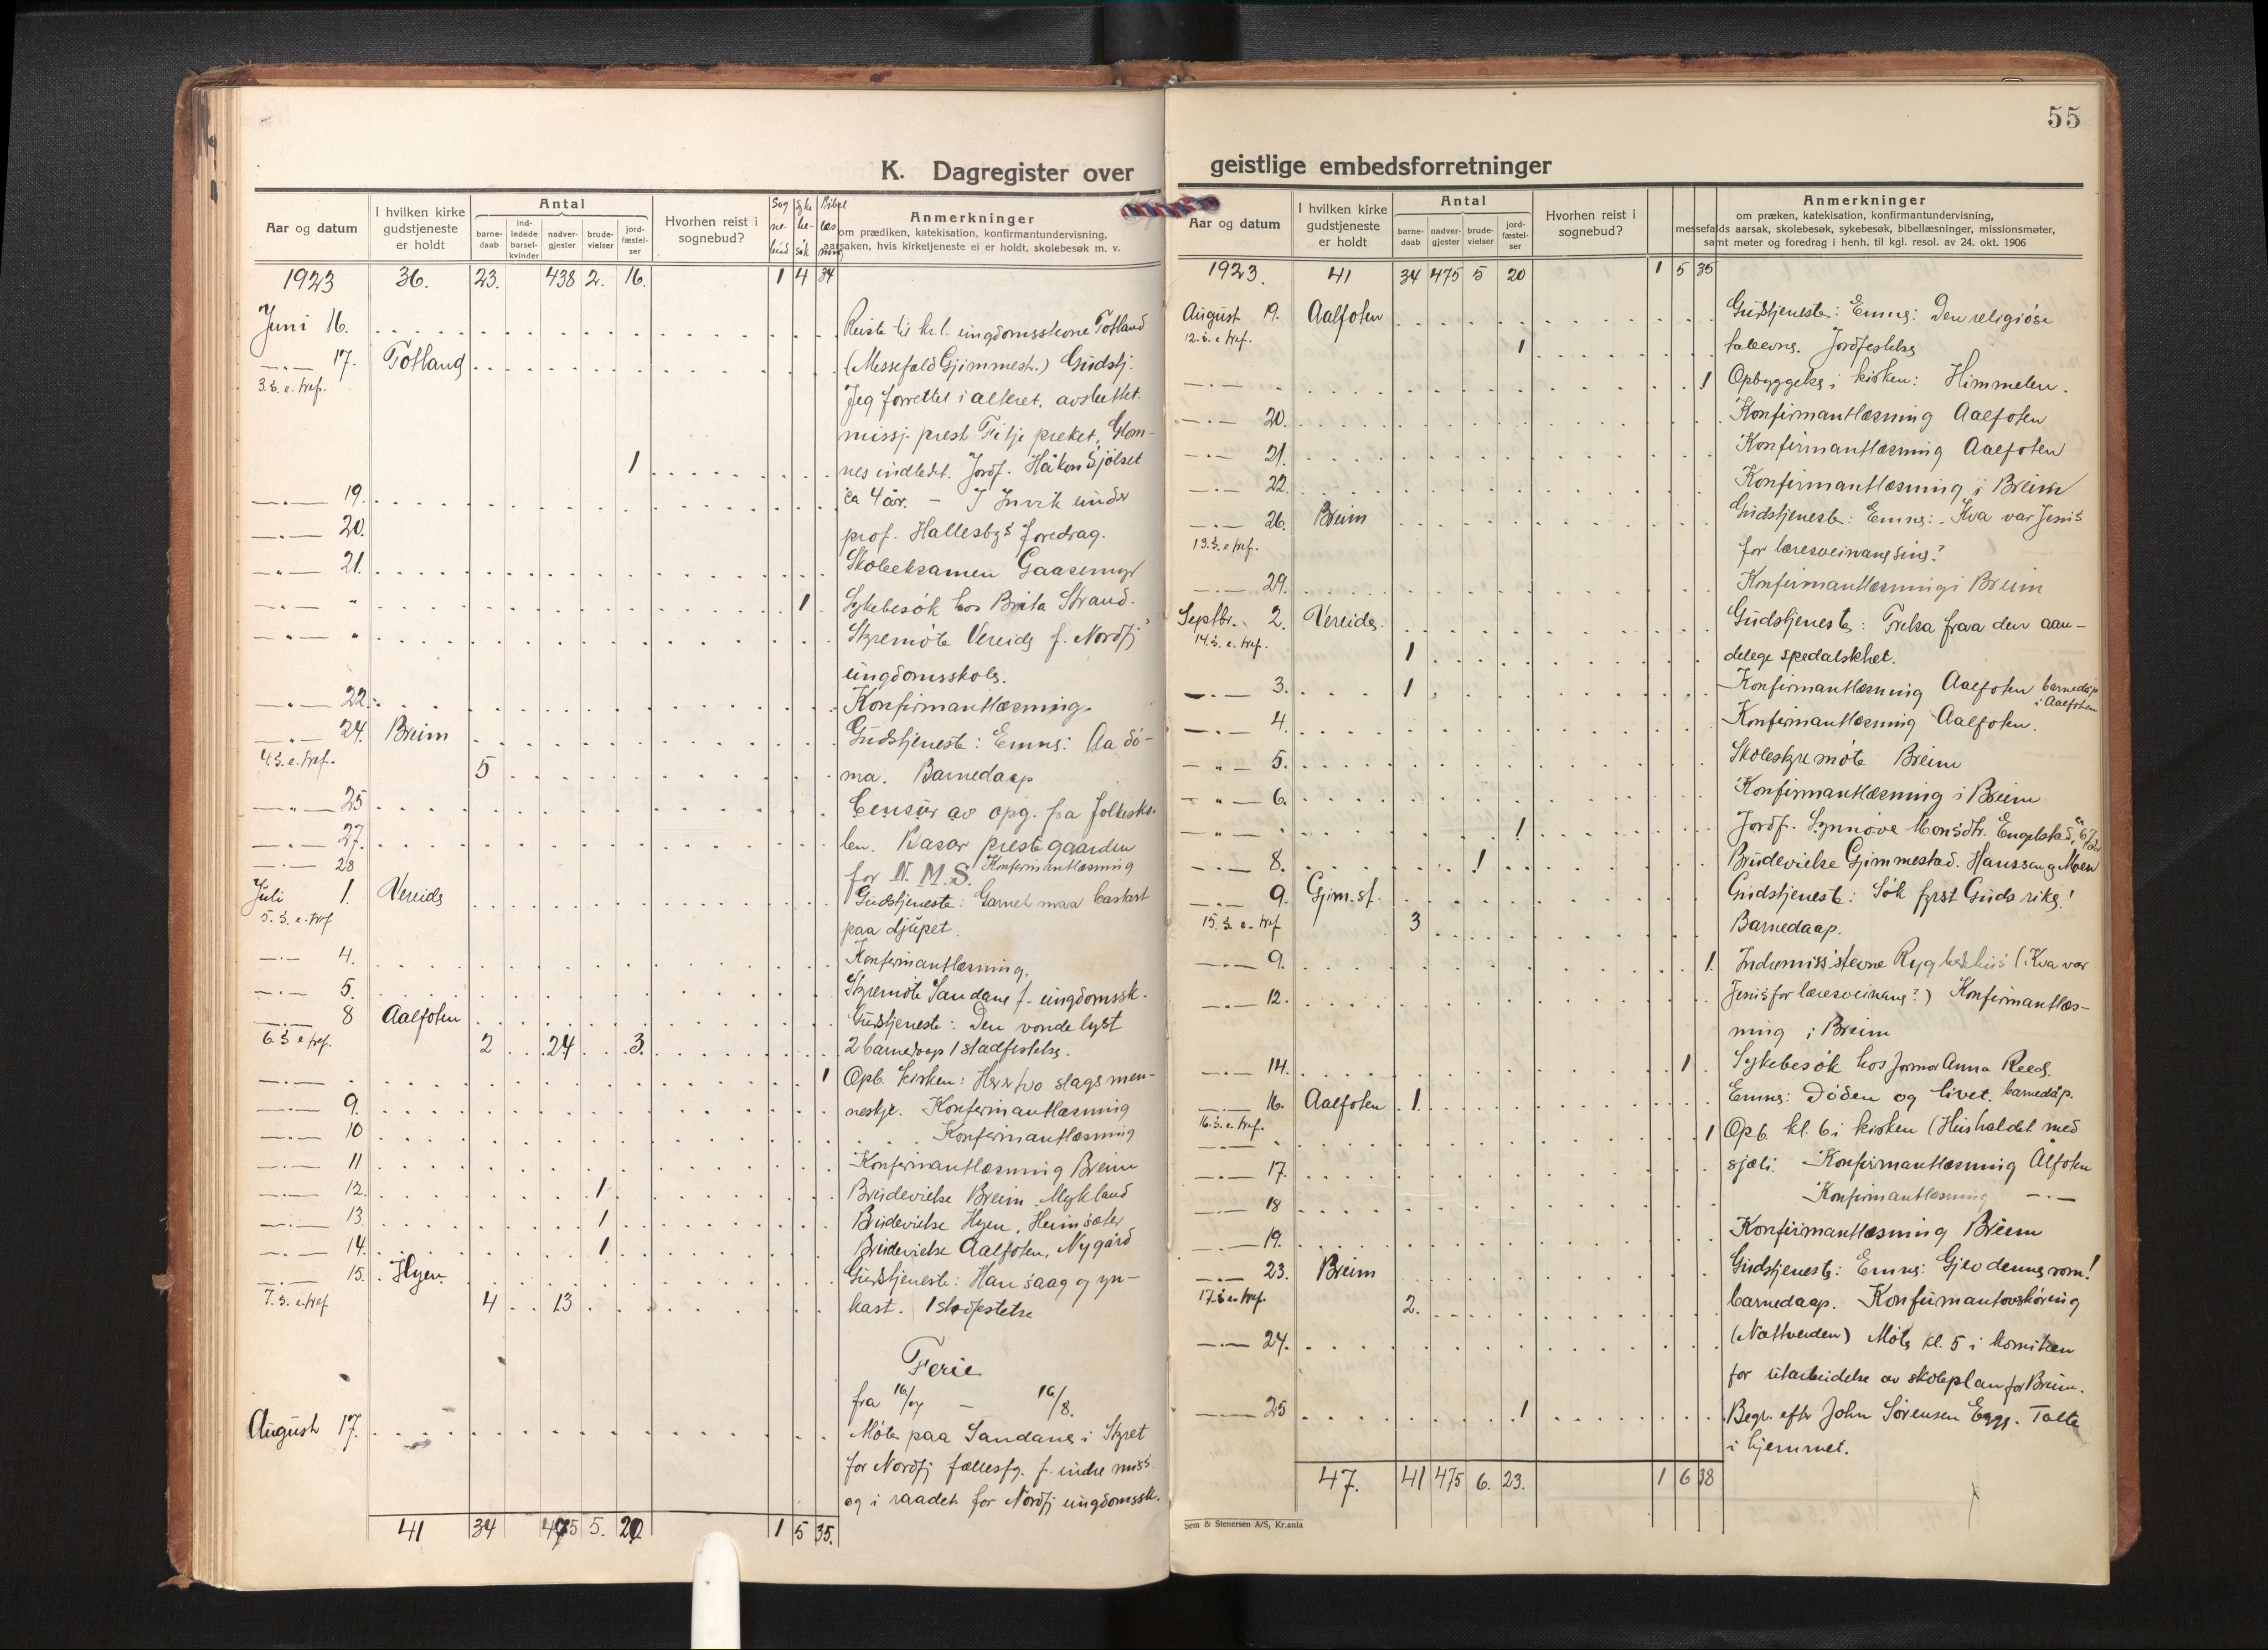 K. Dagregister over
Aar og datum
I hvilken kirke gudstjeneste er holdt
Antal
barne-daab
ind-ledede barsel-kvinder
nadver-gjester
brude-vielser
jord-fæstel-ser
Hvorhen reist i sognebud?
Sog ne- bud
Syke be- søk
Bibel læs ning
Anmerkninger
om prædiken, katekisation, konfirmantundervisning,
aarsaken, hvis kirketjeneste ei er holdt, skolebesøk m. v.
1923 36. 23. 438 2. 16. 1 4 34
Juni 16. Reiste til kr.l. ungdomsstevne Totland
17. Totland (Messefald Gjimmest.) Gudstj.
3. s. e. tref. Jeg forrettet i alteret, avsluttet.
missj. prest Fitje preket, Glom-
1 nes indledet. Jordf. Håkon Sjölset
19. ca 4 år. – I Invik under
20. prof. Hallesbys foredrag.
21. Skoleeksamen Gaasemyr
" 1 Sykebesök hos Brita Strand.
" Styremöte Vereide f. Nordfj
ungdomsskole.
22. Konfirmantlæsning.
24. Breim Gudstjeneste: Emne: Aa dö-
4. s. e. tref. 5 ma. Barnedaap
25 Censur av opg. fra folkesko-
27. len. Basar prestegaarden
28 for N. M. S. Konfirmantlæsning
Juli 1. Vereide Gudstjeneste: Garnet maa kastast
5. s. e. tref paa djupet.
4. Konfirmantlæsning.
5. Styremöte Sandane f. ungdomssk.
8 Aalfoten Gudstjeneste: Den vonde lyst
6. s e tref. 2 24 3. 2 barnedaap 1 stadfestelse.
1 Opb. kirken: tvo slags men-
9. neskje. Konfirmantlæsning
10 Konfirmantlæsning
11 Konfirmantlæsning Breim
12. 1 Brudevielse Breim. Mykland
13. 1 Brudevielse Hyen, Heimsæter
14. 1 Brudevielse Aalfoten, Nygård
15. Hyen. Gudstjeneste: Han saag og yn-
7. s. e. tref 4 13 kast. 1 stadfestelse
Ferie
fra 16/7 – 16/8.
August 17. Möte paa Sandane i Styret
for Nordfj fællesfg. f. indre miss.
og i raadet for Nordfj ungdomssk.
41 34 475 5. 20 1 5 35.
55
geistlige embedsforretninger
Aar og datum
I hvilken kirke gudstjeneste er holdt
Antal
barne-daab
nadver-gjester
brude-vielser
jord-fæstel-ser
Hvorhen reist i sognebud?
Anmerkninger
om præken, katekisation, konfirmantundervisning,
messefalds aarsak, skolebesøk, sykebesøk, bibellæsninger, missionsmøter,
samt møter og foredrag i henh. til kgl. resol. av 24. okt. 1906
1923. 41 34 475 5 20 1 5 35
August 19. Aalfoten Gudstjeneste: Emne: Den religiöse
12. s. e tref. 1 Jordfestelse
1 Opbyggelse i kirken: Himmelen.
20. Konfirmantlæsning Aalfoten
21. Konfirmantlæsning Aalfoten
22. Konfirmantlæsning i Breim
26. Breim Gudstjeneste: Emne: Kva var Jesus
13. s. e tref. for læresveinane sine?
29. Konfirmantlæsning i Breim
Septbr. 2. Vereide. Gudstjeneste: Frelsa fraa den aan-
14. s. e. tref. 1 delege spedalskhet.
3. 1 Konfirmantlæsning Aalfoten barnedåp i Aalfoten
4. Konfirmantlæsning Aalfoten.
5. Skolestyremöte Breim
6. Konfirmantlæsning i Breim
" 1 Jordf. Synnöve Monsdtr. Engelstad,
8. 1 Brudevielse Gjimmestad. Hanssen og Moen
9. Gjim.st. Gudstjeneste: Søk fyrst Guds rike!
15. s. e. tref 3 Barnedaap.
9. 1. Indremiss. stevne Rygg bedehus (Kva var
12. Jesus for læresveinane?) Konfirmantlæs-
ning i Breim
14. 1 Sykebesök hos Anna Reed.
16. Aalfoten 1. Emne: Döden og livet. barnedåp.
16. s. e. tref. 1 Opb. kl. 6 i kirken (Hushaldet med
17. sjæli. Konfirmantlæsning Ålfoten
18 Konfirmantlæsning —.—
19. Konfirmantlæsning Breim
23. Breim Gudstjeneste: Emne: Gjev denne rom!
17. s e. tref. 2. barnedaap. Konfirmantovshöring
(Nattverden) Möte kl. 5 i komiteen
24. for utarbeidelse av skoleplan for Breim.
25 1 Begr. efter John Sörensen Egge. Talte
i hjemmet.
47. 41 475 6. 23. 1 6 38
Sem & Stenersen A/S, Kr.ania